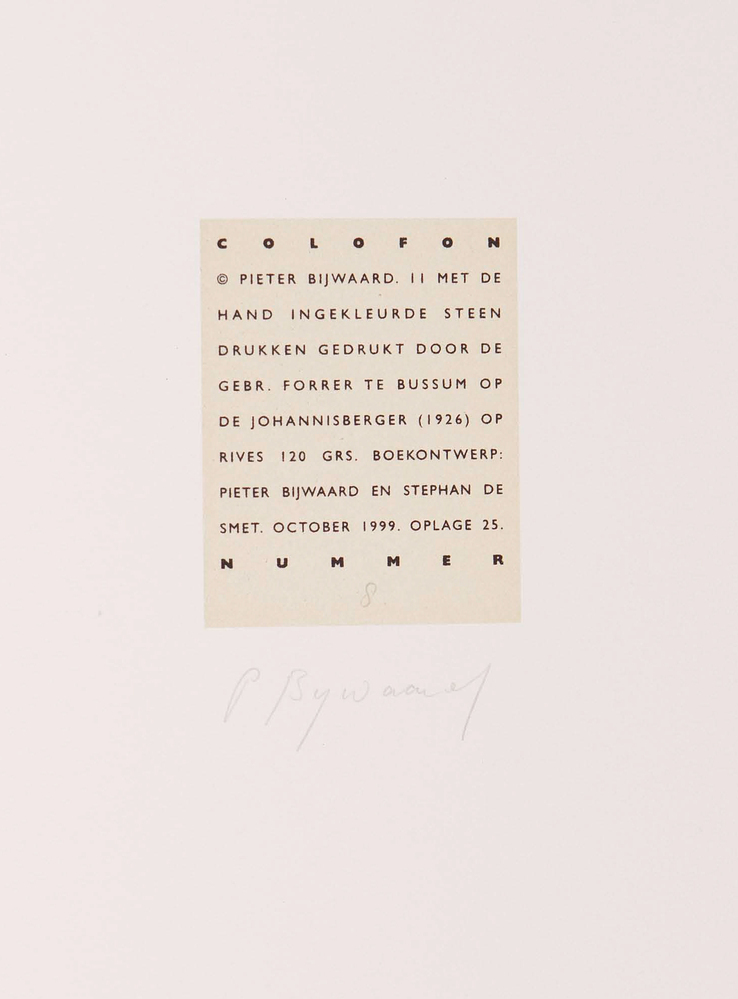 COLOFON
© PIETER BIJWAARD. 11 MET DE
HAND INGEKLEURDE STEEN
DRUKKEN GEDRUKT DOOR DE
GEBR. FORRER TE BUSSUM OP
DE JOHANNISBERGER (1926) OP
RIVES 120 GRS. BOEKONTWERP:
PIETER BIJWAARD EN STEPHAN DE
SMET. OCTOBER 1999. OPLAGE 25.
NUMMER
8
P Bijwaard